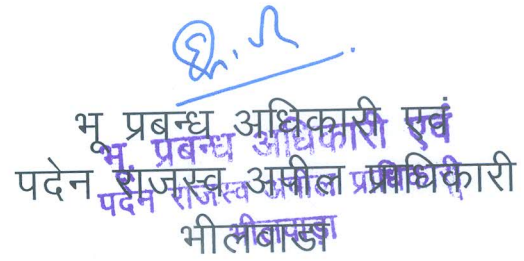 भू प्रबन्ध अधिकारी एवं
पदेन राजस्व अपील प्राधिकारी
भीलवाडा
भू. प्रबन्ध अधिकारी एवं
पदेन राजस्व अपील प्राधिकारी
भीलवाड़ा